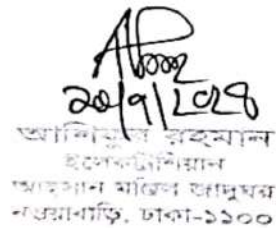 ২০/৭/২০২৪
আশিকুল রহমান
ইলেকট্রিশিয়ান
আহসান মঞ্জিল জাদুঘর
নওয়াবাড়ি, ঢাকা-১১০০